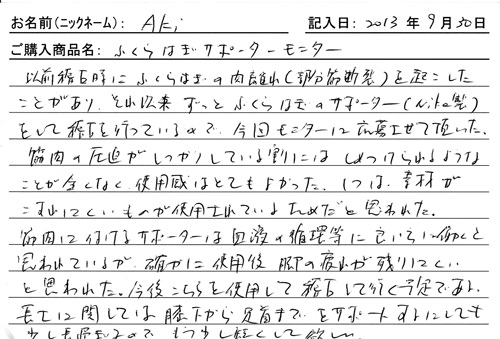 お名前(ニックネーム): Aki 記入日: 2013年9月30日
ご購入商品名: ふくらはぎサポーターモニター
以前稽古時にふくらはぎの肉離れ(部分筋断裂)を起こした
ことがあり、それ以来ずっとふくらはぎのサポーター(Nike製)
をして稽古を行っているので、今回モニターに応募させて頂いた。
筋肉の圧迫がしっかりしている割にはしめつけられるような
ことが全くなく、使用感はとてもよかった。1つは、素材が
こすれにくいものが使用されているためだと思われた。
筋肉に付けるサポーターは血液の循環等に良いように働くと
思われているが、確かに使用後脚の疲れが残りにくい
と思われた。今後こちらを使用して稽古して行く予定である。
長さに関しては膝下から足首までをサポートするにしても
少し長過ぎるのでもう少し短くして欲しい